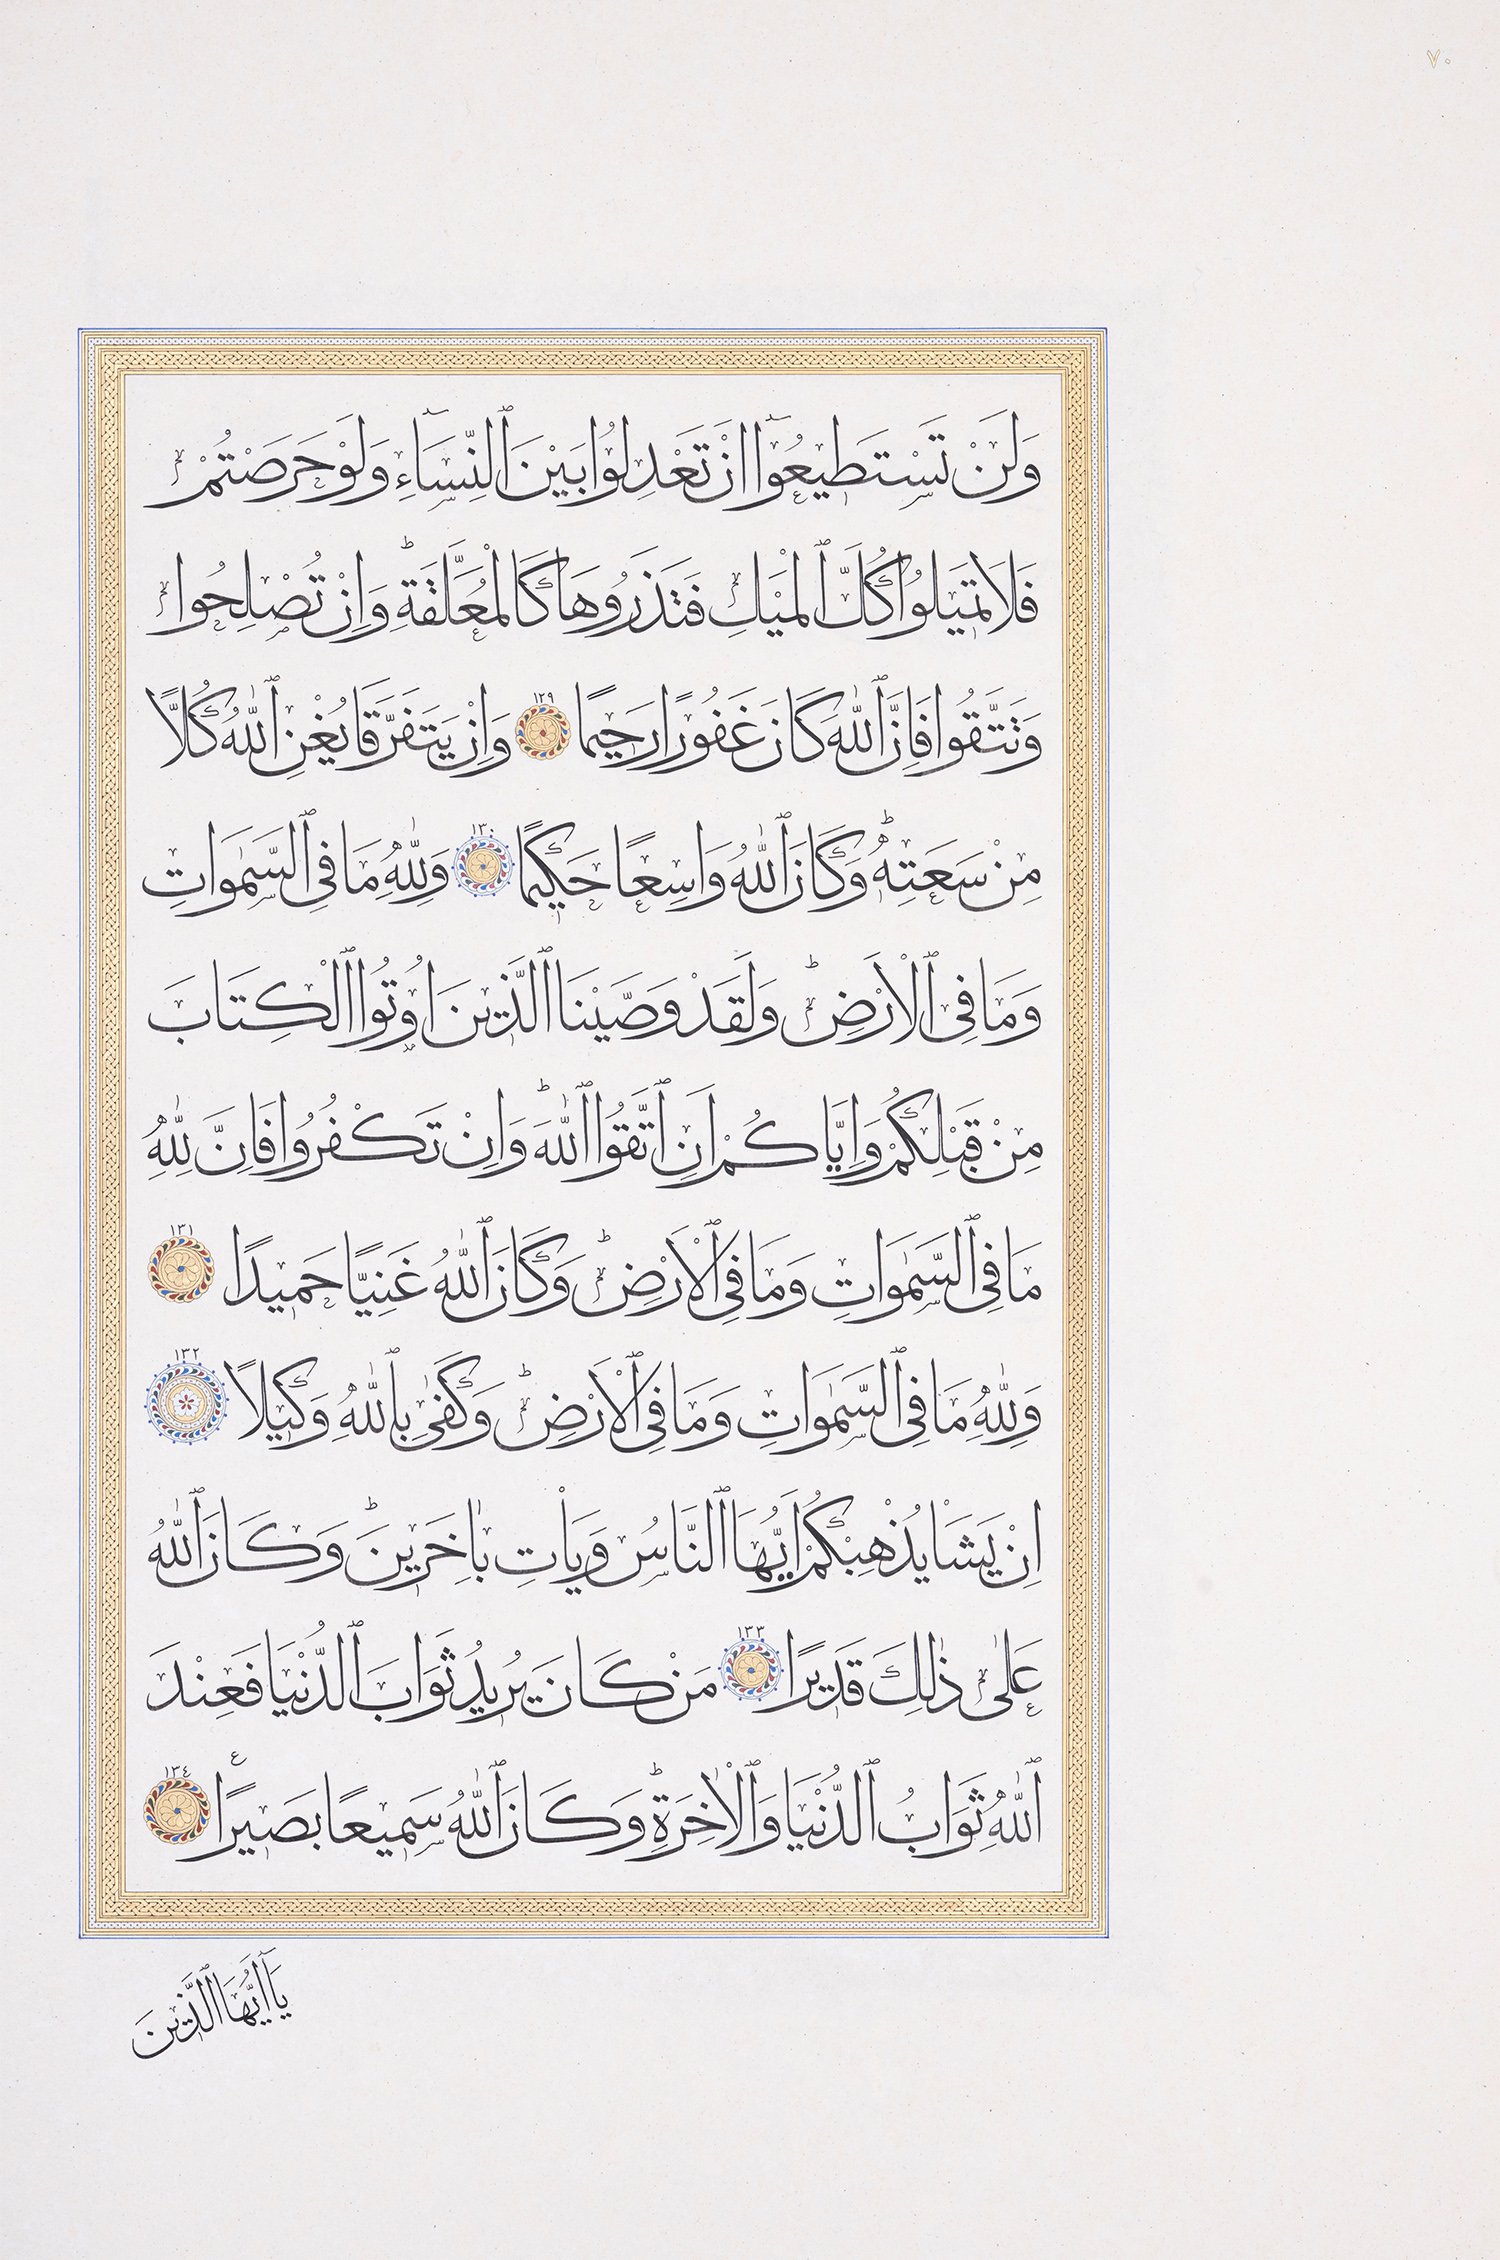 ٧٠
وَلَنْ تَسْتَطِيعُٓوا اَنْ تَعْدِلُوا بَيْنَ ٱلنِّسَٓاءِ وَلَوْ حَرَصْتُمْ
فَلَا تَمِيلُوا كُلَّ ٱلْمَيْلِ فَتَذَرُوهَا كَالْمُعَلَّقَةِۜ وَاِنْ تُصْلِحُوا
وَتَتَّقُوا فَاِنَّ ٱللّٰهَ كَانَ غَفُورًا رَحِيمًا ١٢٩ وَاِنْ يَتَفَرَّقَا يُغْنِ ٱللّٰهُ كُلًّا
مِنْ سَعَتِهِۜ وَكَانَ ٱللّٰهُ وَاسِعًا حَكِيمًا ١٣٠ وَلِلّٰهِ مَا فِي ٱلسَّمٰوَاتِ
وَمَا فِي ٱلْاَرْضِۜ وَلَقَدْ وَصَّيْنَا ٱلَّذِينَ اُوتُوا ٱلْكِتَابَ
مِنْ قَبْلِكُمْ وَاِيَّاكُمْ اَنِ ٱتَّقُوا ٱللّٰهَۜ وَاِنْ تَكْفُرُوا فَاِنَّ لِلّٰهِ
مَا فِي ٱلسَّمٰوَاتِ وَمَا فِي ٱلْاَرْضِۜ وَكَانَ ٱللّٰهُ غَنِيًّا حَمِيدًا ١٣١
وَلِلّٰهِ مَا فِي ٱلسَّمٰوَاتِ وَمَا فِي ٱلْاَرْضِۜ وَكَفٰى بِٱللّٰهِ وَكِيلًا ١٣٢
اِنْ يَشَأْ يُذْهِبْكُمْ اَيُّهَا ٱلنَّاسُ وَيَأْتِ بِاٰخَرِينَۜ وَكَانَ ٱللّٰهُ
عَلٰى ذٰلِكَ قَدِيرًا ١٣٣ مَنْ كَانَ يُرِيدُ ثَوَابَ ٱلدُّنْيَا فَعِنْدَ
ٱللّٰهِ ثَوَابُ ٱلدُّنْيَا وَٱلْاٰخِرَةِۜ وَكَانَ ٱللّٰهُ سَمِيعًا بَصِيرًا ع ١٣٤
يَٓا اَيُّهَا ٱلَّذِينَ